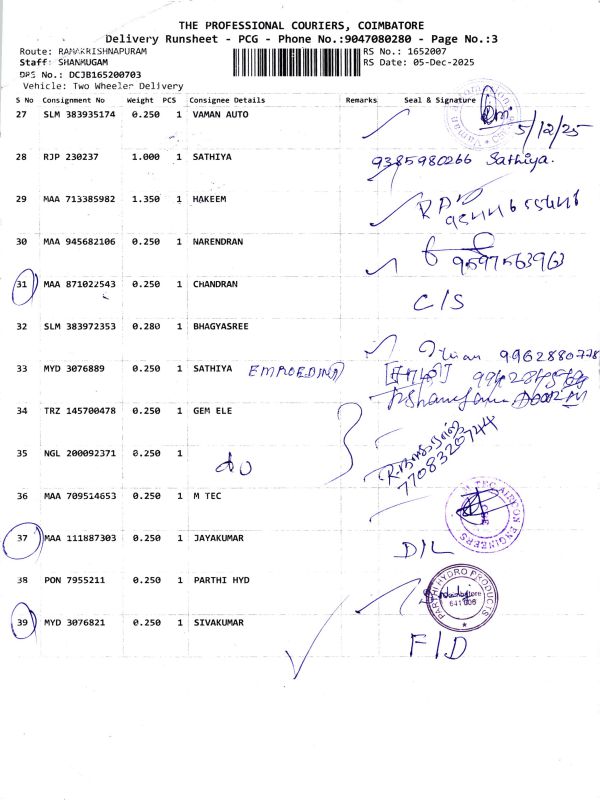 THE PROFESSIONAL COURIERS, COIMBATORE
Delivery Runsheet - PCG - Phone No.:9047080280 - Page No.:3
Route: RAMAKRISHNAPURAM
RS No.: 1652007
Staff: SHANMUGAM
RS Date: 05-Dec-2025
DRS No.: DCJB165200703
Vehicle: Two Wheeler Delivery
S No Consignment No Weight PCS Consignee Details Remarks Seal & Signature
27 SLM 383935174 0.250 1 VAMAN AUTO
5/12/25
28 RJP 230237 1.000 1 SATHIYA 9385980266 Sathiya.
29 MAA 713385982 1.350 1 HAKEEM
30 MAA 945682106 0.250 1 NARENDRAN
9597563963
31 MAA 871022543 0.250 1 CHANDRAN
C/S
32 SLM 383972353 0.280 1 BHAGYASREE
9962880778
33 MYD 3076889 0.250 1 SATHIYA
34 TRZ 145700478 0.250 1 GEM ELE
7708320744
35 NGL 200092371 0.250 1
do
36 MAA 709514653 0.250 1 M TEC
M TEC AIRCON ENGINEERS
37 MAA 111887303 0.250 1 JAYAKUMAR
D/L
38 PON 7955211 0.250 1 PARTHI HYD
PARTHI HYDRO PRODUCTS
Coimbatore
641 006
39 MYD 3076821 0.250 1 SIVAKUMAR
F/D